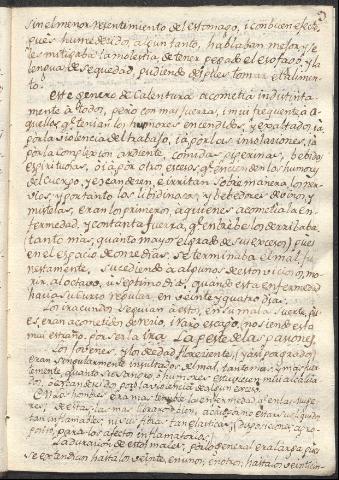 sin el menor resentimiento del estomago, i con buen efecto,
pues humedecidos algun tanto, hablaban mejor, y se
les mitigaba la molestia de tener pegado el esofago, y la
lengua de sequedad, pudiendo despues tomar el alimen-
to.
Este genero de Calentura acometia indistinta-
mente à todos, pero con mas fuerza, i mui frequenteza a-
quellos, qe tenian los humores encendidos, y exaltados, ia
por la violencia del trabajo, ia por las insolaciones, ia
por la complexion ardiente, comidas piperinas, bebidas
espirituosas, ò ia por otros excesos, qe encienden los humores
del cuerpo, y encienden, e irritan sobre manera los ner-
vios, y por tanto los libidinosos, y bebedores de vinos, y
mistelas, eran los primeros, a quienes acometia la en-
fermedad, y con tanta fuerza, qe en brebe los derribaba,
(tanto mas, quanto mayor el grado de sus excesos) pues
en el espacio de once dias, se terminaba el mal fu-
nestamente, sucediendo a algunos de estos vicios, mo-
rir al octavo, u septimo dia, quando esta enfermedad
hacia su curso regular, en veinte y quatro dias.
Los iracundos seguian a estos, en su mala suerte, pu-
es, eran acometidos de recio, i raro escapò, no siendo esto
mui estraño, por ser la Ira La peste de las pasiones.
Los jovenes, y los de edad floreciente,
eran singularmente insultados del mal, tanto mas, y mas fuer-
temente, quanto su sangre, i humores estuviesen mui acalora-
dos, o estancados por la violencia de algun exceso.
Mas hombres, eran mas la enfermedad, qe en las muge-
res; de estas, las mas libraron bien, acaso por no estar sus liquidos
tan inflamables, ni sus fibras tan elasticas, i disposiciones apro-
posito, para los afectos inflamatorios.
La duracion de estos males, por lo general era larga, pues
se extendian hasta los veinte, en unos; en otros, hasta los veintiun-